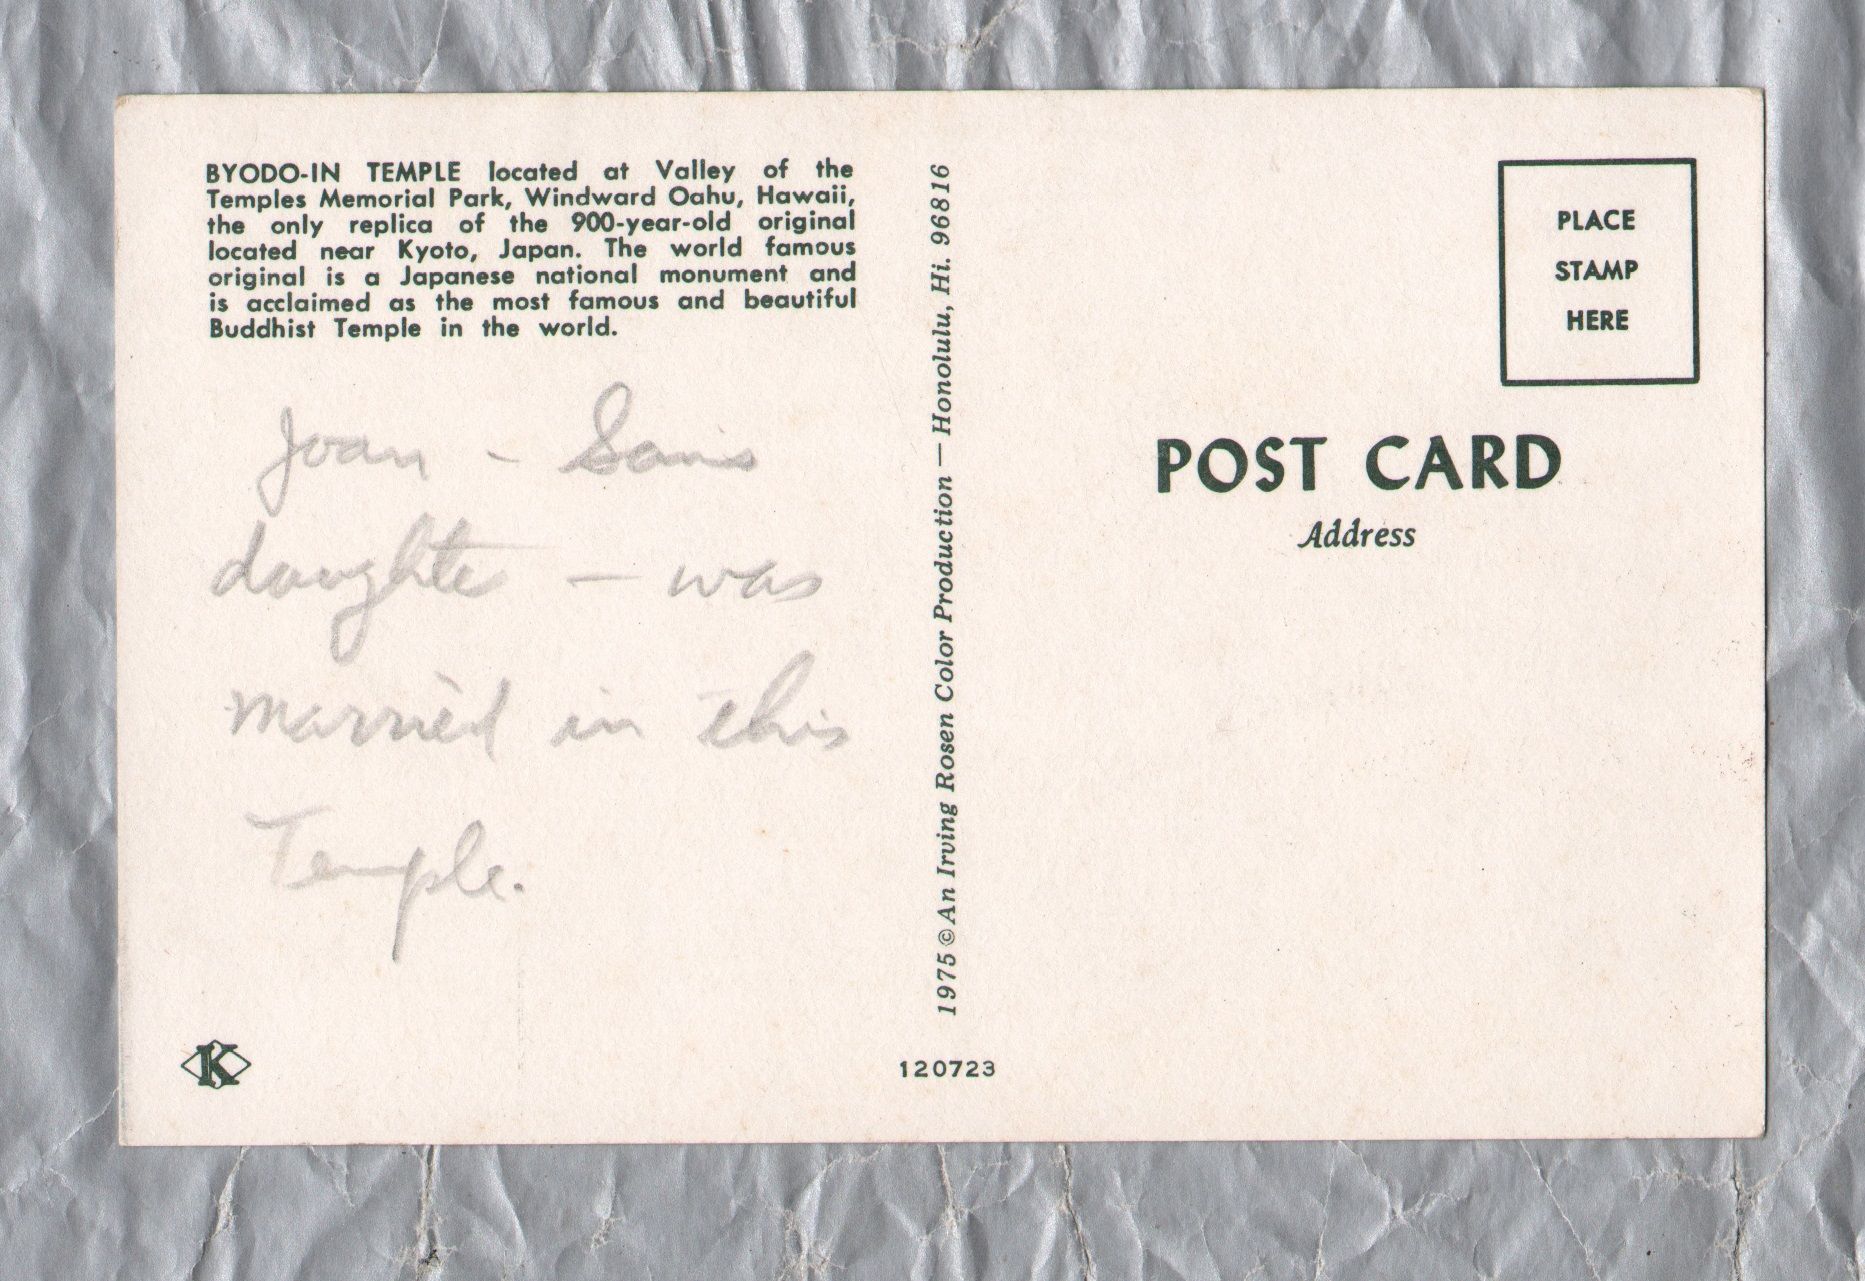 BYODO-IN TEMPLE located at Valley of the
Temples Memorial Park, Windward Oahu, Hawaii,
the only replica of the 900-year-old original
located near Kyoto, Japan. The world famous
original is a Japanese national monument and
is acclaimed as the most famous and beautiful
Buddhist Temple in the world.
Joan - Sam's
daughter - was
married in this
Temple.
K
1975 © An Irving Rosen Color Production — Honolulu, Hi. 96816
120723
PLACE
STAMP
HERE
POST CARD
Address